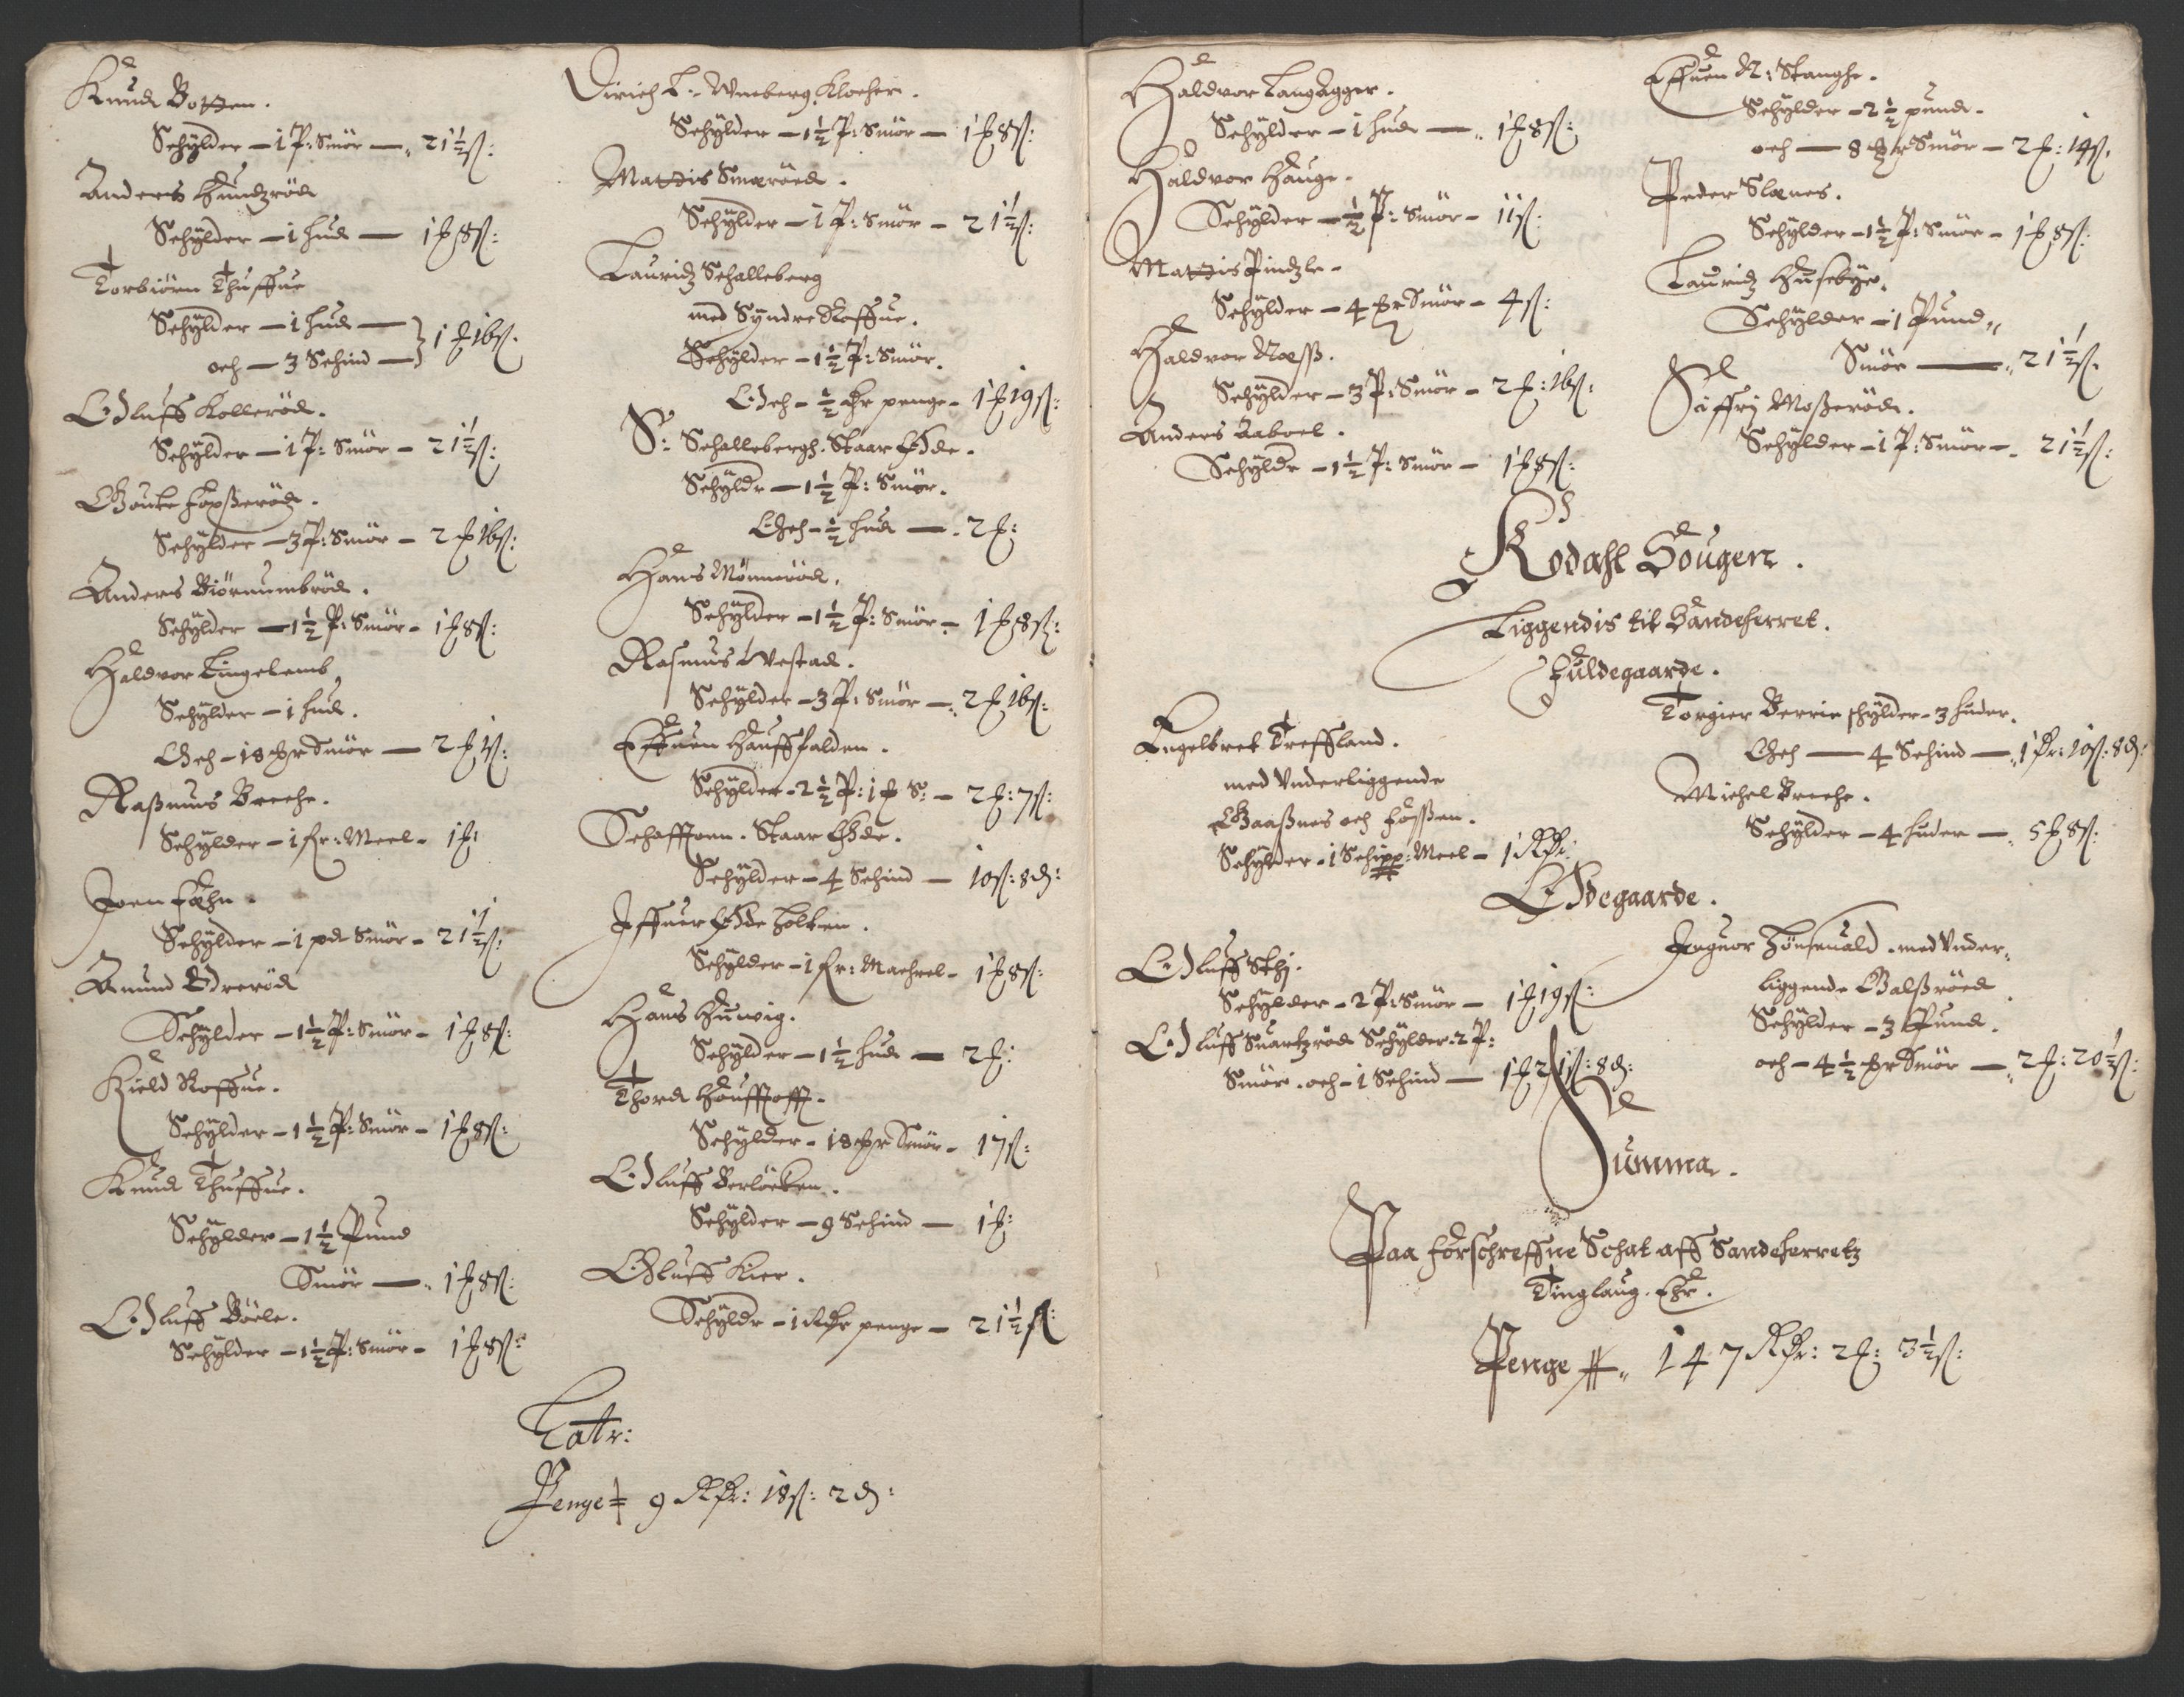 Knud Botten.
Schylder - 1 P: Smör - 21½ s:
Anders Hundzröd
Schylder - 1 hud - 1 f 8 s:
Torbiörn Thuffue
Schylder - 1 hud -
och - 3 Schind - 1 f 16 s.
Oluff Kolleröd.
Schylder - 1 P: Smör - 21½ s:
Goute
Schylder - 3 P: Smör - 2 f 16 s:
Anders Biörnumbröd.
Schylder - 1½ P: Smör - 1 f 8 s:
Haldvor Lingelemb
Schylder - 1 hud.
Och - 18 Smör - 2 f 1 s:
Rasmus Breche.
Schylder - 1 fr: Meel - 1 f:
Joen Fæhn.
Schylder - 1 pd Smör - 21½ s:
Amund
Schylder - 1½ P: Smör - 1 f 8 s:
Kield Roffue.
Schylder - 1½ P: Smör - 1 f 8 s:
Knud Thuffue.
Schylder - 1½ Pund
Smör - 1 f 8 s:
Oluff Böele.
Schylder - 1½ P: Smör - 1 f 8 s:
Dirich L: Wneberg, Klocher.
Schylder - 1½ P: Smör - 1 f 8 s:
Mattis Smæröed.
Schylder - 1 P: Smör - 21½ s:
Lauridz Schalleberg
med Syndre Roffue.
Schylder - 1½ P: Smör.
Och - ½ dr penge - 1 f 19 s:
S: Schallebergh. Staar Øde.
Schyldr - 1½ P: Smör.
Och - ½ hud - 2 f:
Hans Mönneröd.
Schylder - 1½ P: Smör - 1 f 8 s:
Rasmus Westad.
Schylder - 3 P: Smör - 2 f 16 s:
Effuen Hauffsalden.
Schylder - 2½ P: 1 S: - 2 f: 7 s:
Schafftoen. Staar Øde.
Schylder - 4 Schind - 10 s: 8 d:
Iffuer Øde Holken.
Schylder - 1 fr: Machrel - 1 f 8 s:
Hans Hunvig.
Schylder - 1½ hud - 2 f:
Thord Houfftoff.
Schylder - 18 Smör - 17 s:
Oluff Berlöcken.
Schylder - 9 Schind - 1 f:
Oluff Kier.
Schyldr - 1 Rdr penge - 21½ s:
Latr:
Penge 9 Rdr: 18 s: 2 d:
Haldvor Langagger.
Schylder - 1 hud - 1 f 8 s:
Haldvor Hauge.
Schylder - ½ P: Smör - 11 s:
Mattis Pindzle.
Schylder - 4 Smör - 4 s:
Haldvor Næss.
Schylder - 3 P: Smör - 2 f: 16 s:
Anders Aaboel.
Schyldr - 1½ P: Smör - 1 f 8 s:
Effuen N: Stanghe.
Schylder - 2½ pund.
och - 8 Smör - 2 f: 14 s.
Peder Slænes.
Schylder - 1½ P: Smör - 1 f 8 s:
Lauridz Husebye.
Schylder - 1 Pund
Smör - 21½ s.
Siffri Mosseröd.
Schylder - 1 P: Smör - 21½ s:
Kodahl Sougen.
Liggendis til Sandeherret.
Fuldegaarde.
Engelbret Treffland.
med Vnderliggende
Gaassnes och Fossen.
Schylder - 1 Schipp: Meel - 1 Rdr:
Torgier Berrie schylder - 3 huder.
Och - 4 Schind - 1 Rdr: 10 s: 8 d:
Michel Breche.
Schylder - 4 huder - 5 f 8 s:
Ødegaarde.
Oluff Skij.
Schylder - 2 P: Smör - 1 f 19 s:
Oluff Suartzröd Schylder. 2 P:
Smör. och - 1 Schind - 1 f 21 s: 8 d:
Inguor Hönseuald. med Vnder-
liggende Galssröed
Schylder - 3 Pund.
och - 4½ Smör - 2 f: 20½ s:
Summa.
Paa forschreffne Schat aff Sandeherretz
Tinglaug. Ehr.
Penge 147 Rdr: 2 f: 3½ s: